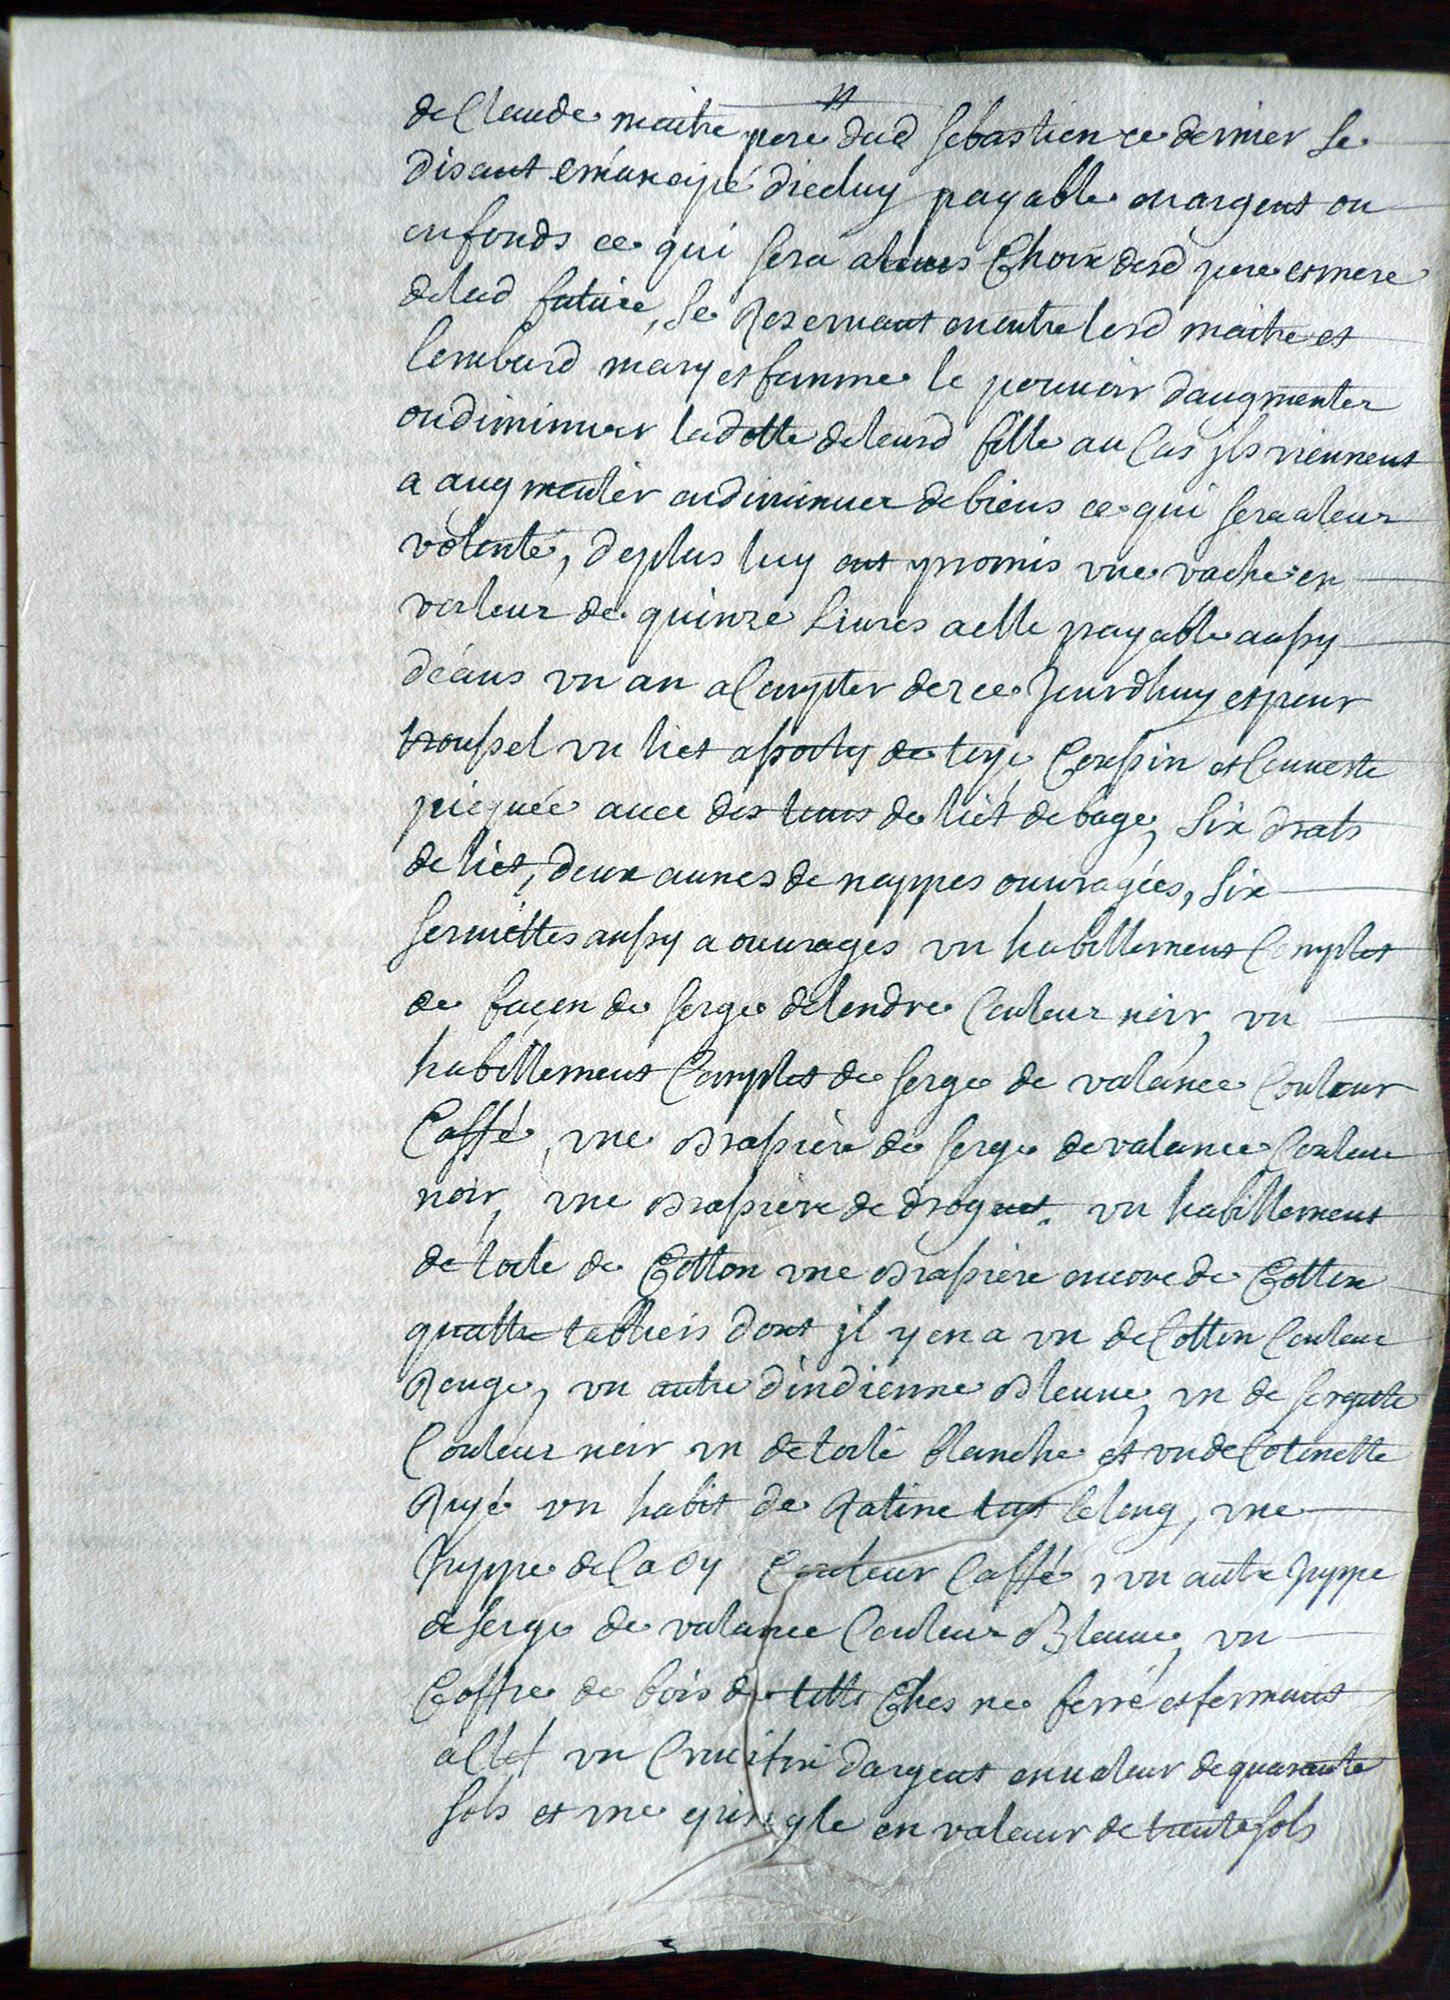 de Claude maitre pere dud Sebastien ce dernier se
disant emancipé diceluy payable en argent ou
en fonds ce qui sera a leurs Choix desd pere et mere
delad future, Se Reservant en outre lesd maitre et
Lombard mary et femme le pouvoir daugmenter
ou diminuer la dotte de leurd fille au Cas jls viennent
a augmenter ou diminuer de biens ce qui sera a leur
volonté, deplus luy ont promis vne vache en
valeur de quinze Livres a elle payable aussy
dans vn an a Compter de ce Jourdhuy et pour
troussel vn lict assorty de Coussin et Couverte
picquée avec des tours de lict de six drats
de lict, deux aunes de nappes ouvragées, six
serviettes aussy a ouvrages vn habillement Complet
de façon de serge delondre Couleur noir, vn
habillement Complet de serge de valance Couleur
Caffé, vne Brassiere de serge de valance Couleur
noir, vne Brassiere de droguet, vn habillement
de toile de Cotton vne Brassiere encore de Cotton
quattre tabliers dont jl y en a vn de Cotton Couleur
Rouge, vn autre dindienne Bleuue, vn de sergette
Couleur noir vn de toile blanche et vn de Cotonette
Rayé vn habit de Ratine tout le long, vne
Juppe de Cady Couleur Caffé, vn autre Juppe
de serge de valance Couleur Bleuue, vn
Coffre de bois de Chesne ferré et fermant
a Clef vn Crucifix dargent en valeur de quarante
sols et vne epingle en valeur de trente sols